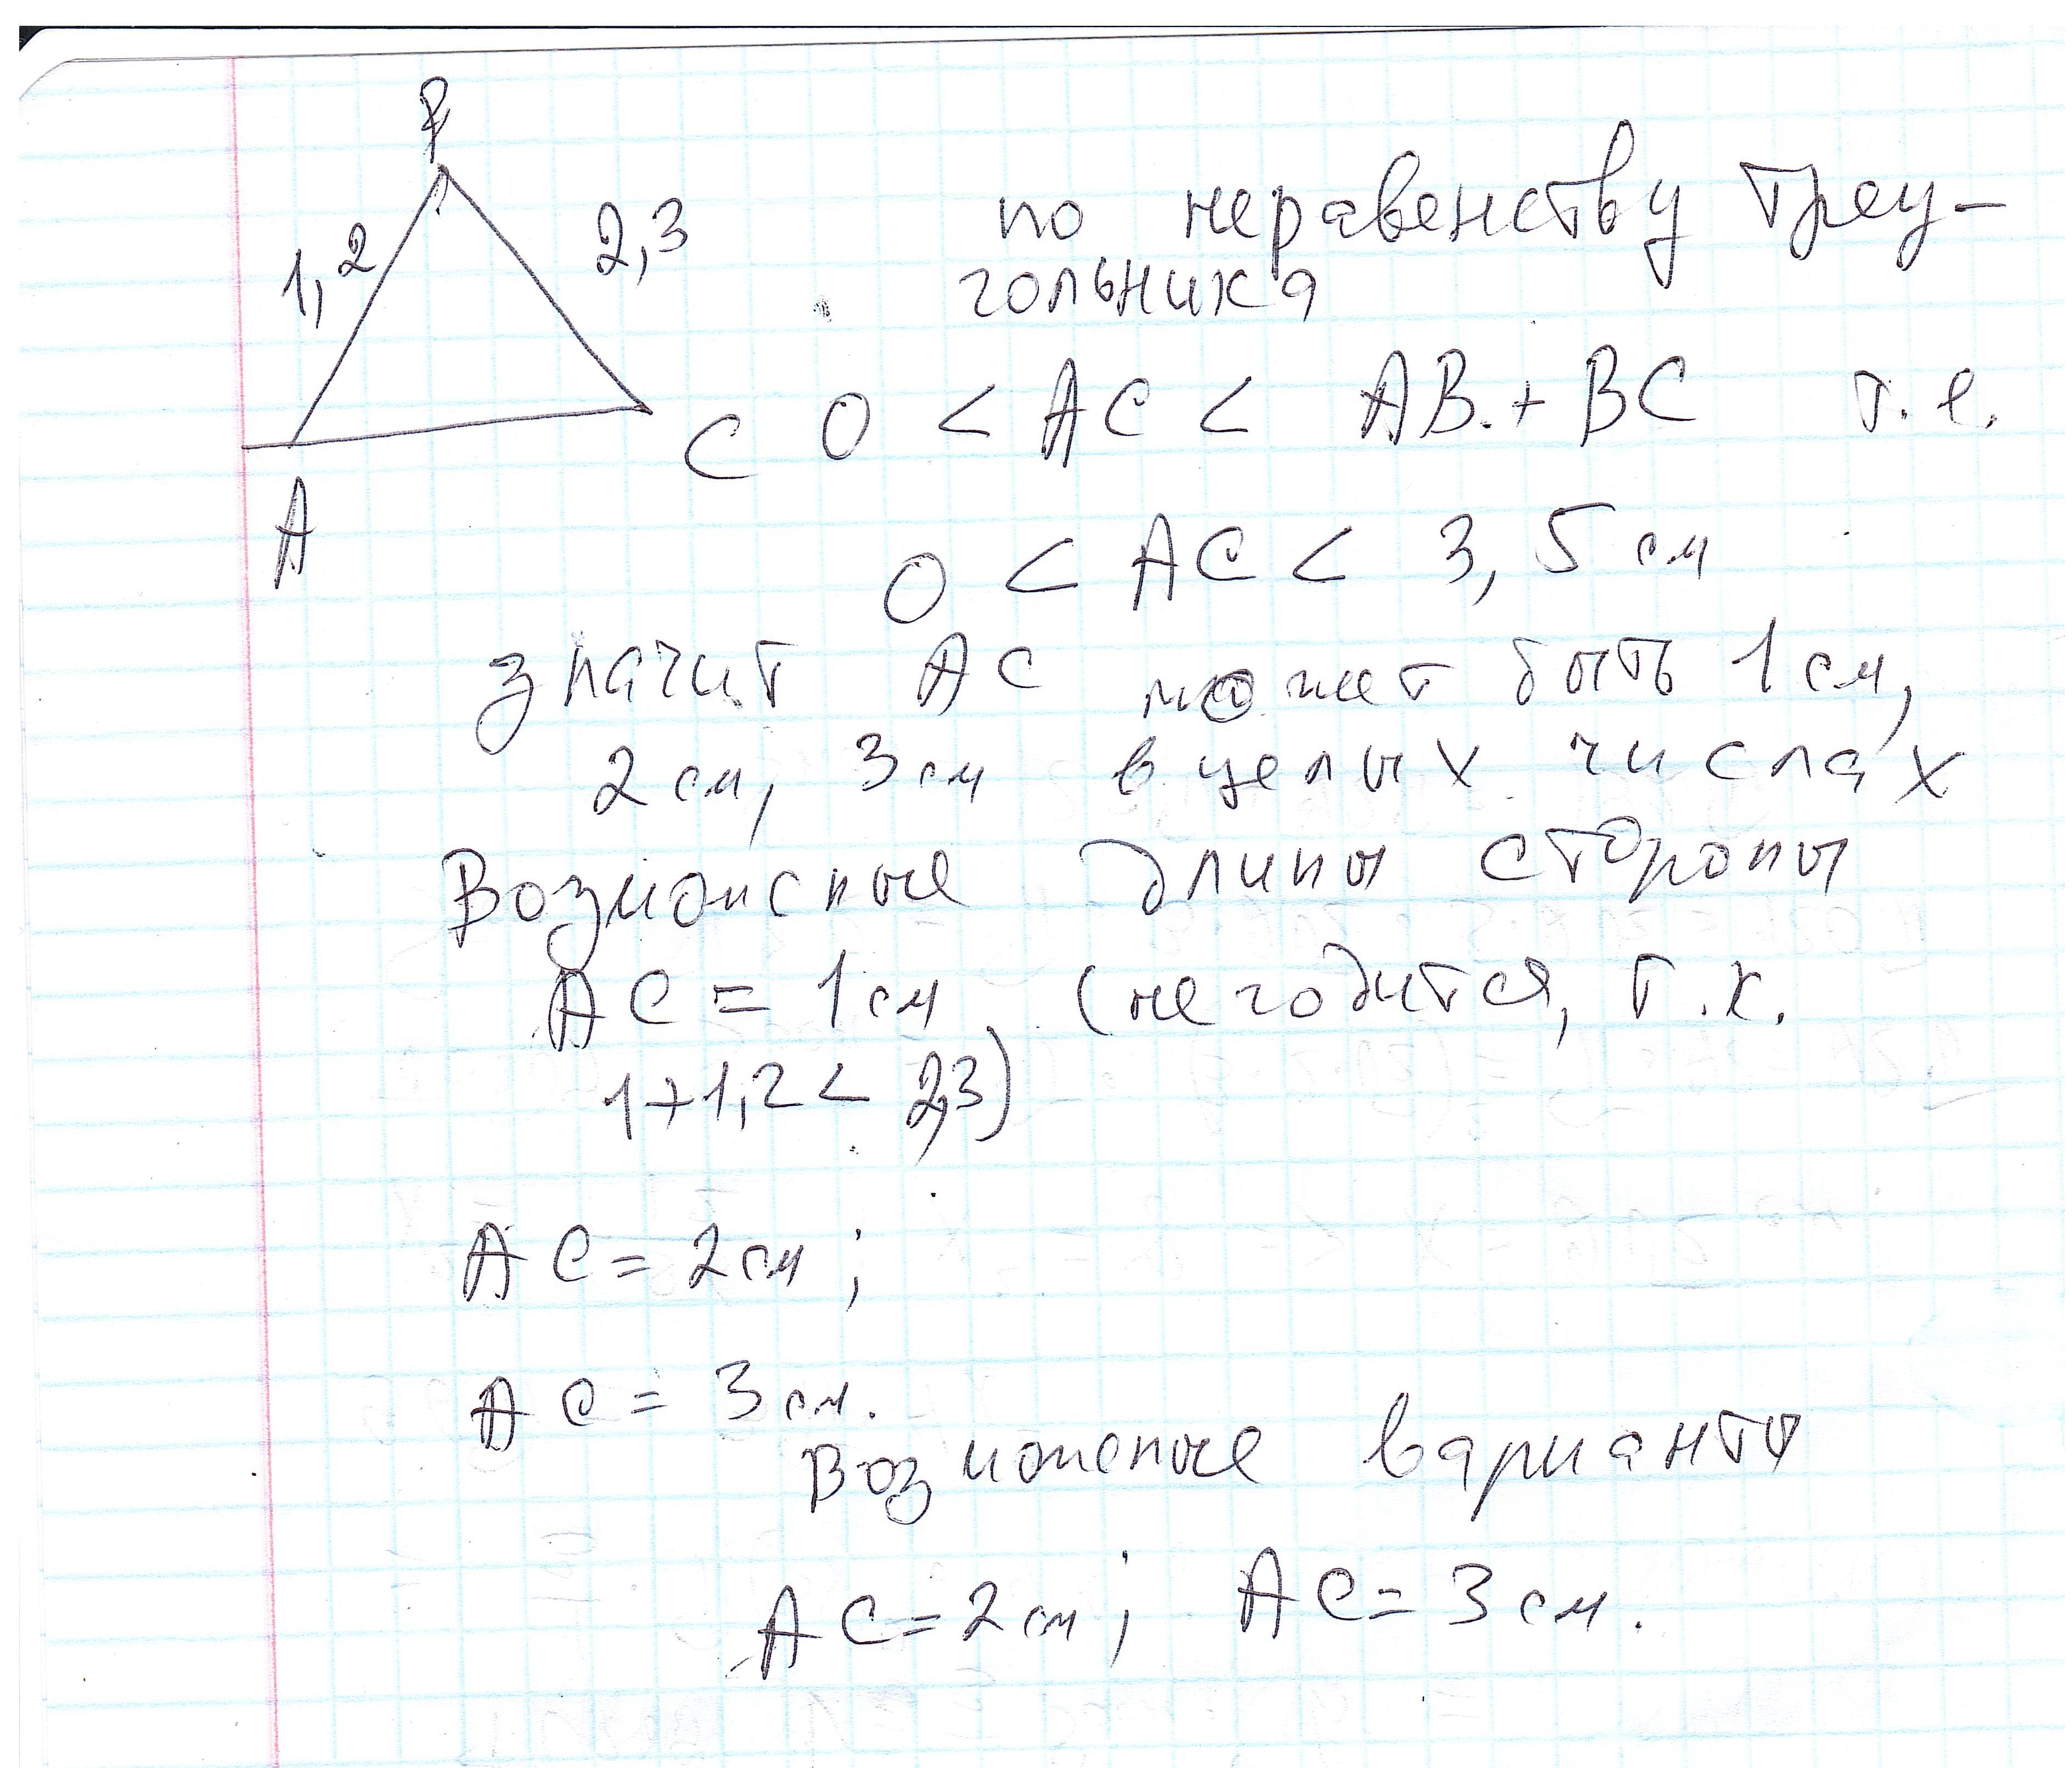 В
1,2
2,3
А
С
по неравенству треу-
гольника
0 < АС < АВ + ВС т.е.
0 < АС < 3,5 см
значит АС может быть 1 см,
2 см, 3 см в целых числах
Возможные длины стороны
АС = 1 см (не годится, т.к.
1+1,2 < 2,3)
АС = 2 см;
АС = 3 см.
Возможные варианты
АС = 2 см; АС = 3 см.